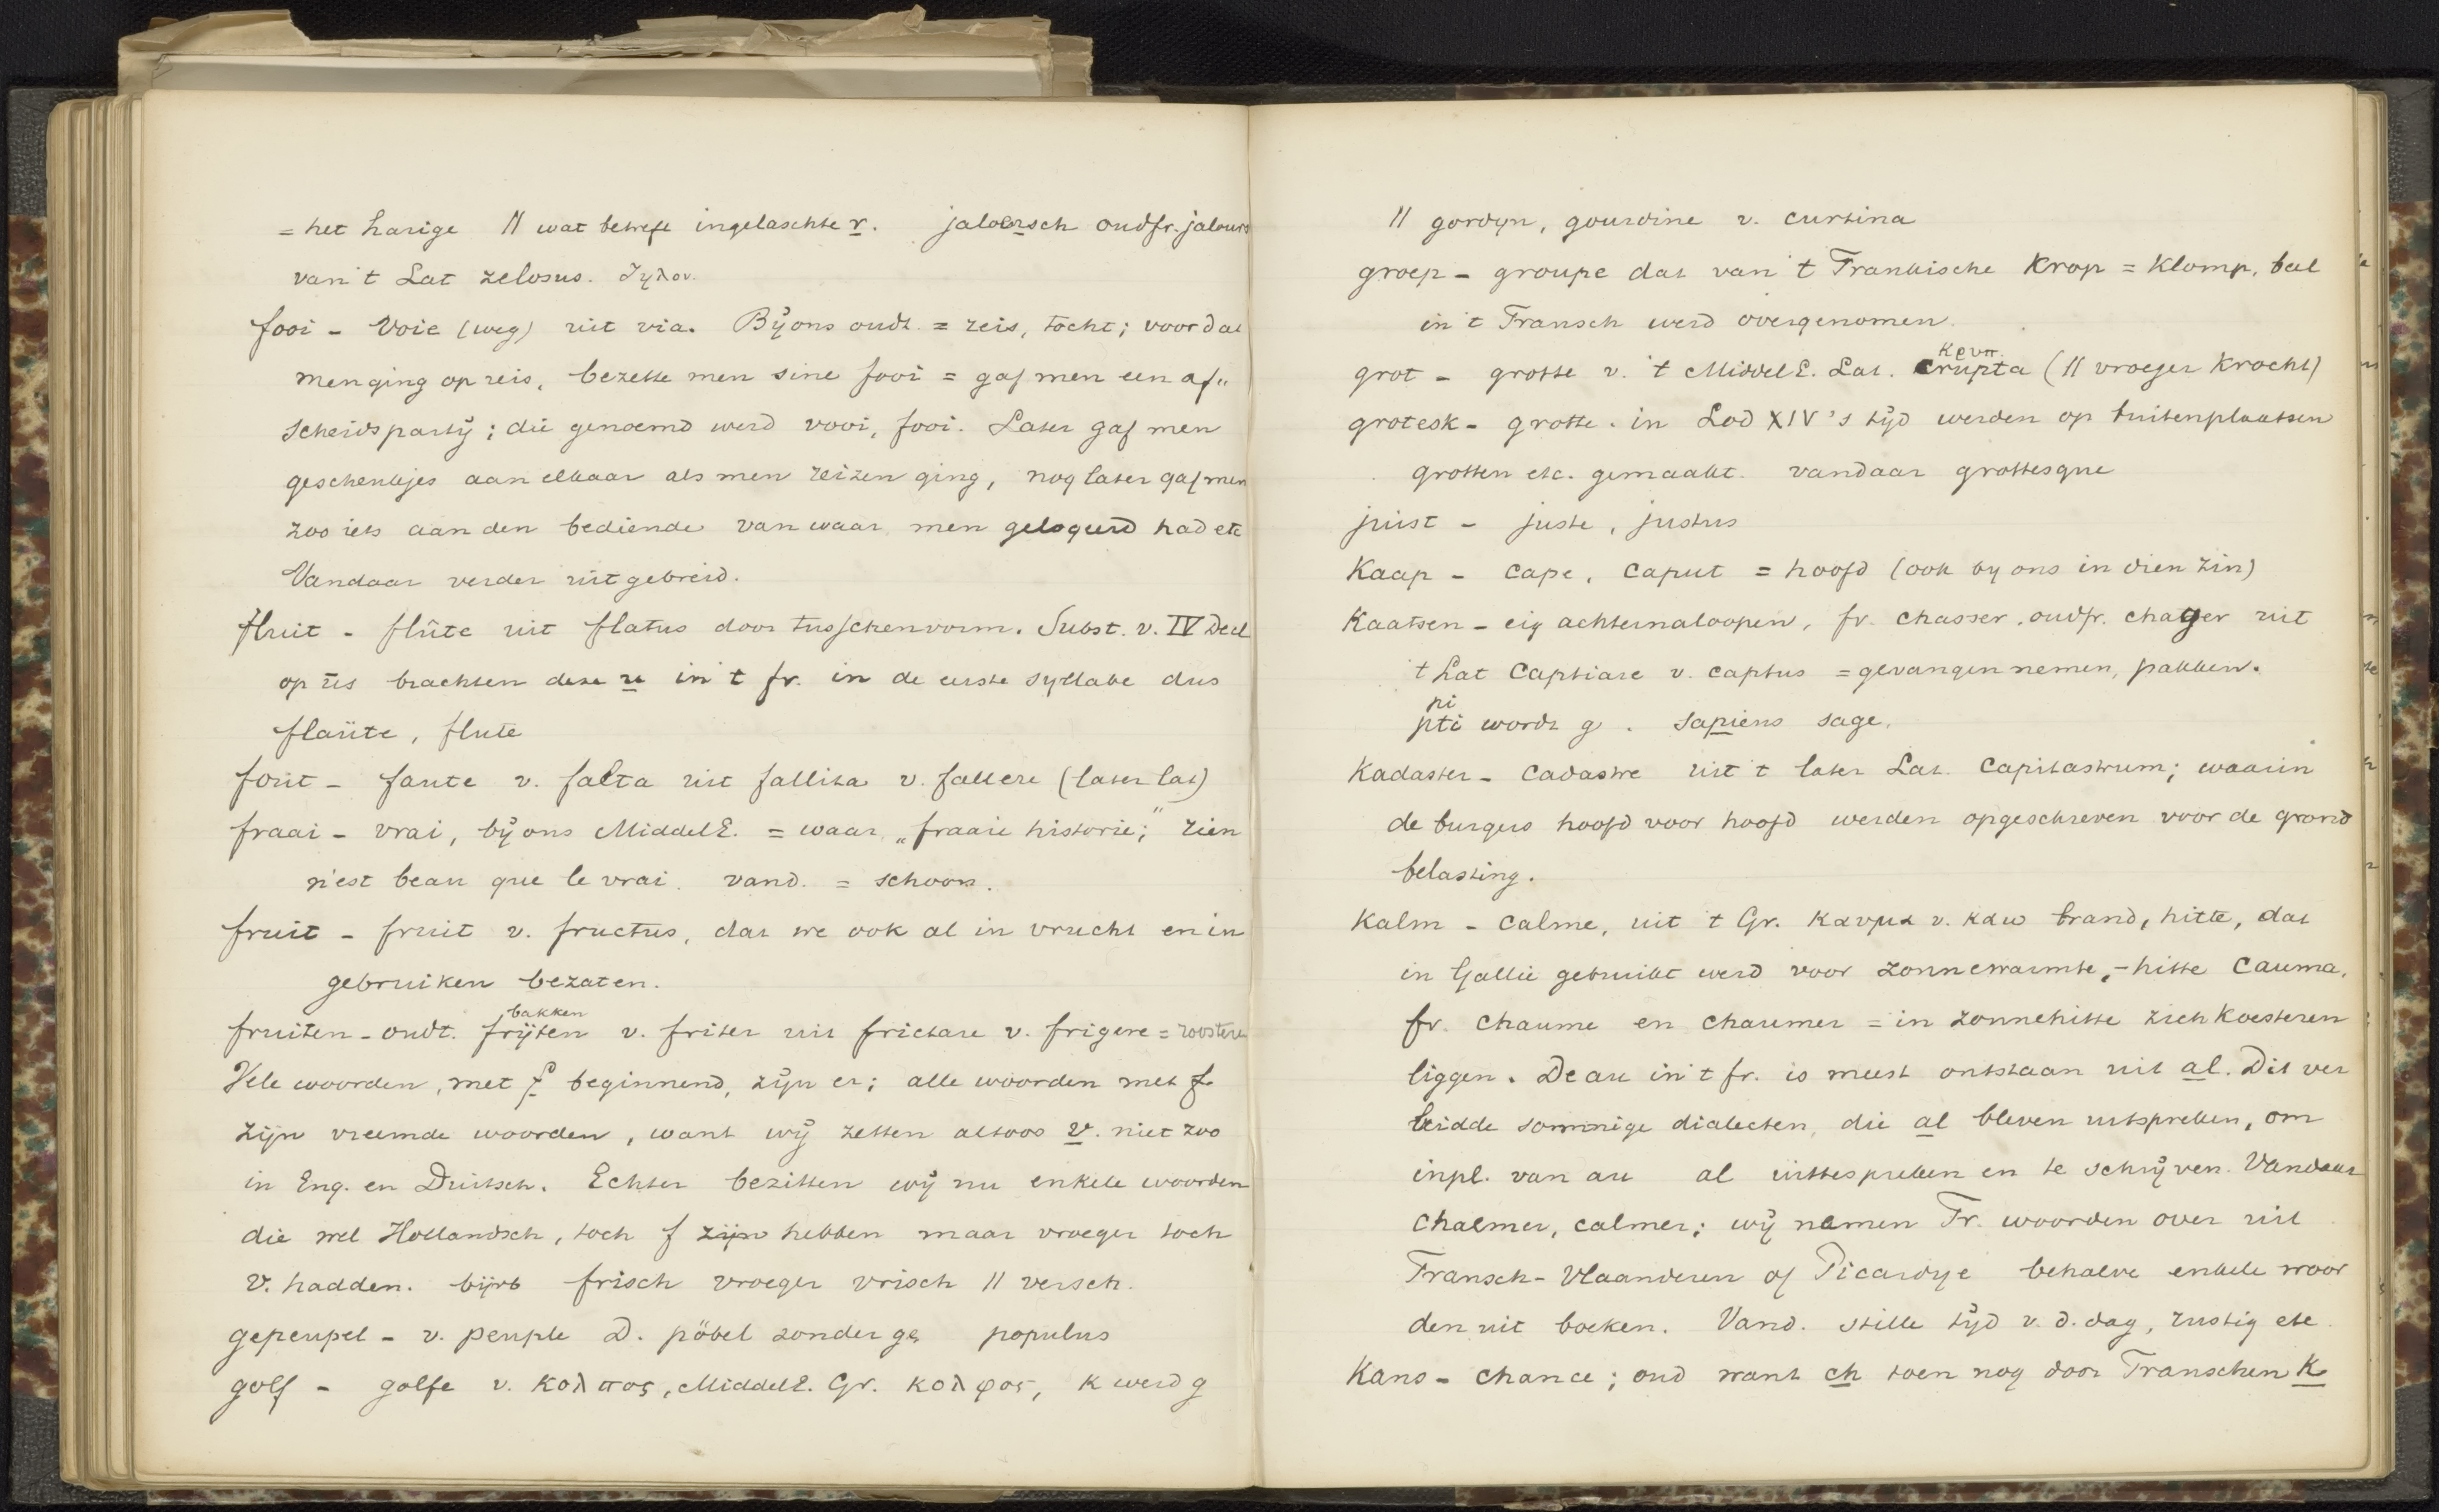 = het harige || wat betreft ingelaschte r. jaloersch oudfr. jalours
van 't Lat zelosus.
fooi - voie (weg) uit via. Bij ons oudt. = reis, tocht; voordat
men ging op reis, bezette men sine fooi = gaf men een af„
scheidspartij; die genoemd werd vooi, fooi. Later gaf men
geschenkjes aan elkaar als men reizen ging, nog later gaf men
zoo iets aan den bediende van waar men gelogeerd had etc
Vandaar verder uitgebreid.
fluit - flûte uit flatus door tusschenvorm. Subst. v. IV Decl
op us brachten deze u in 't fr. in de eerste syllabe dus
flaüte, flute
fout - faute v. falta uit fallita v. fallere (later lat)
fraai - vrai, bij ons MiddelE. = waar „fraaie historie;” rien
n'est beau que le vrai. vand. = schoon.
fruit - fruit v. fructus, dat we ook al in vrucht en in
gebruiken bezaten.
bakken
fruiten - oudt. frijten v. friter uit frictare v. frigere = roosteren
Vele woorden, met f beginnend, zijn er; alle woorden met f
zijn vreemde woorden, want wij zetten altoos v. niet zoo
in Eng. en Duitsch. Echter bezitten wij nu enkele woorden
die wel Hollandsch, toch f zijn hebben maar vroeger toch
v. hadden. bijvb frisch vroeger vrisch || versch.
gepeupel - v. peuple D. pöbel zonder ge populus
golf - golfe v. κολπος, MiddelE. Gr. κολφος, k werd g
|| gordyn, gourdine v. curtina
groep - groupe dat van 't Frankische Krop = Klomp, bal
in 't Fransch werd overgenomen.
κρυπ.
grot - grotte v. 't MiddelE. Lat. crupta (|| vroeger Krocht)
grotesk - grotte. in Lod XIV's tijd werden op buitenplaatsen
grotten etc. gemaakt. vandaar grottesque
juist - juste, justus
Kaap - cape, caput = hoofd (ook by ons in dien zin)
Kaatsen - eig achternaloopen, fr. chasser, oudfr. chager uit
't Lat captiare v. captus = gevangen nemen, pakken.
pi
pti wordt g. sapiens sage.
Kadaster - cadastre uit 't later Lat. capitastrum; waarin
de burgers hoofd voor hoofd werden opgeschreven voor de grond
belasting.
Kalm - calme, uit 't Gr. καυμα v. καω brand, hitte, dat
in Gallië gebruikt werd voor zonnewarmte, -hitte cauma,
fr. chaume en chaumer = in zonnehitte zich koesteren
liggen. De au in 't fr. is meest ontstaan uit al. Dit ver
leidde sommige dialecten, die al bleven uitspreken, om
inpl. van au al uittespreken en te schrijven. Vandaar
chalmer, calmer; wij namen Fr. woorden over uit
Fransch-Vlaanderen of Picardye behalve enkele woor
den uit boeken. Vand. stille tijd v. d. dag, rustig etc.
Kans - chance; oud want ch toen nog door Franschen K